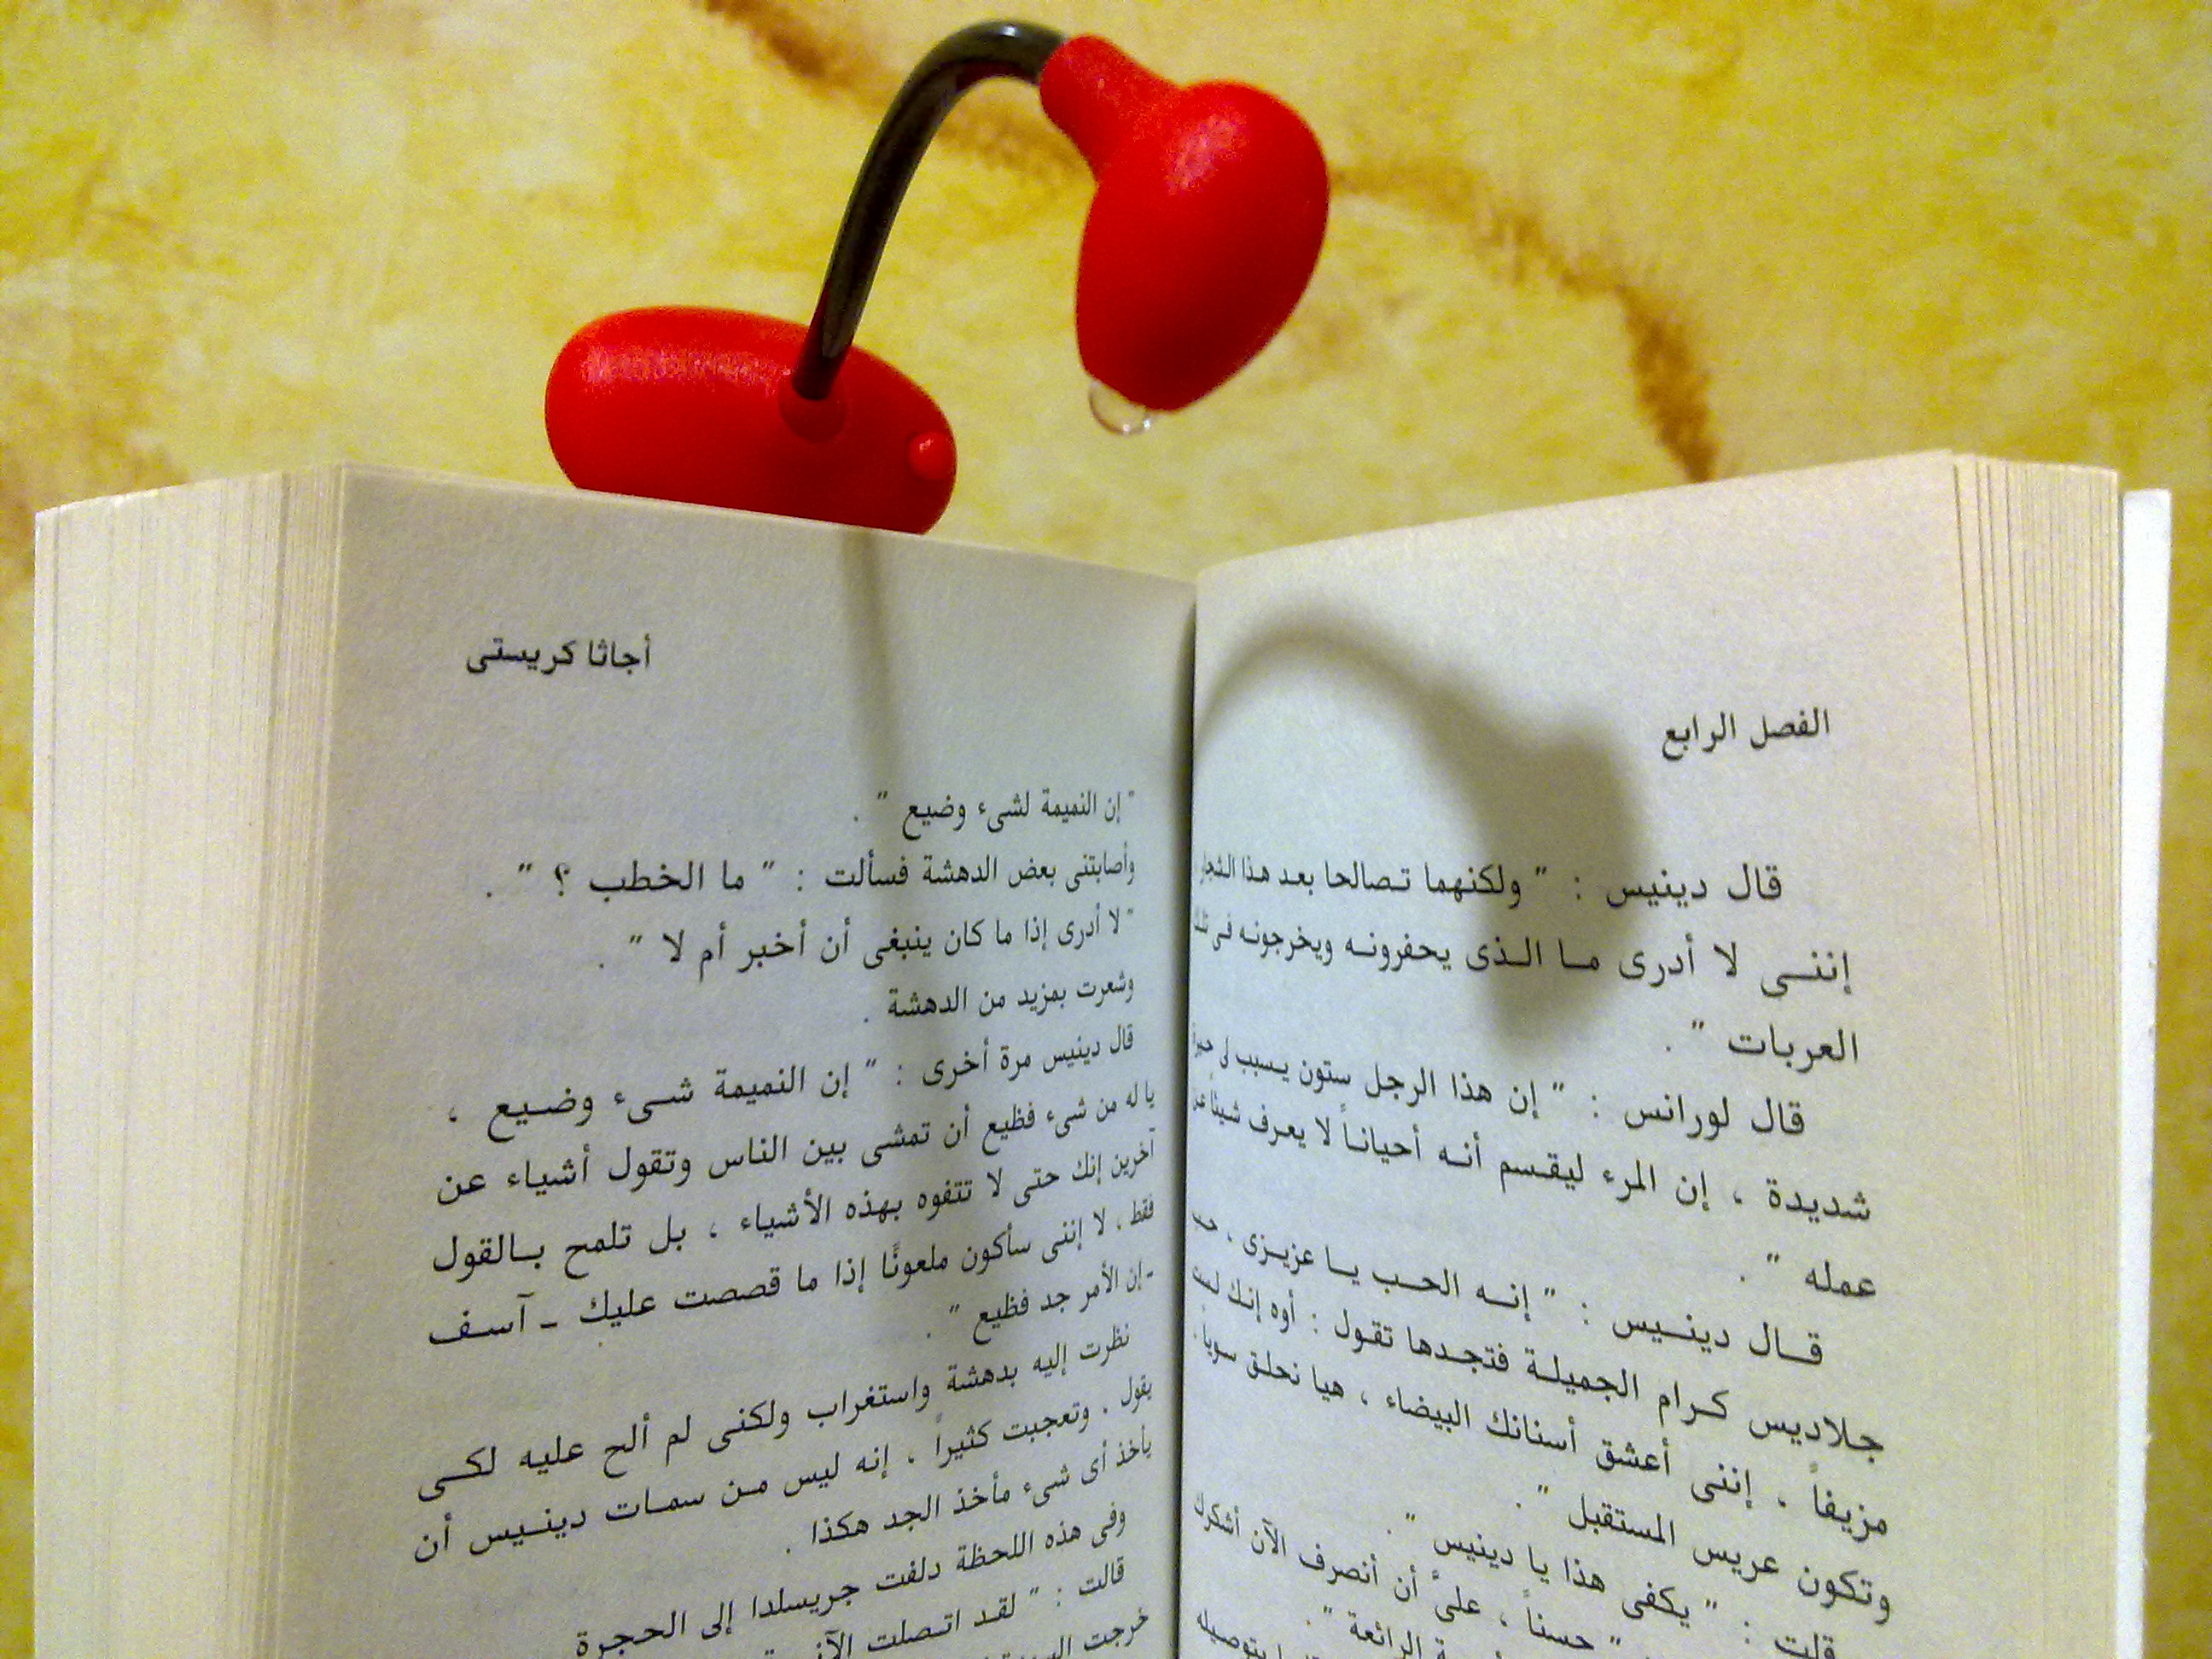 الفصل الرابع
قال دينيس : " ولكنهما تصالحا بعد هذا الشجار
إننى لا أدرى ما الذى يحفرونه ويخرجونه فى تلك
العربات " .
قال لورانس : " إن هذا الرجل ستون يسبب لى حيرة
شديدة ، إن المرء ليقسم أنه أحياناً لا يعرف شيئاً عن
عمله " .
قال دينيس : " إنه الحب يا عزيزى ،
جلاديس كرام الجميلة فتجدها تقول : أوه إنك لست
مزيفاً ، إننى أعشق أسنانك البيضاء ، هيا نحلق سويا
وتكون عريس المستقبل " .
قلت : " يكفى هذا يا دينيس " .
" حسناً ، علىَّ أن أنصرف الآن أشكرك
الرائعة " .
بتوصيله
أجاثا كريستى
" إن النميمة لشىء وضيع " .
وأصابتنى بعض الدهشة فسألت : " ما الخطب ؟ " .
" لا أدرى إذا ما كان ينبغى أن أخبر أم لا " .
وشعرت بمزيد من الدهشة .
قال دينيس مرة أخرى : " إن النميمة شىء وضيع ،
يا له من شىء فظيع أن تمشى بين الناس وتقول أشياء عن
آخرين إنك حتى لا تتفوه بهذه الأشياء ، بل تلمح بالقول
فقط ، لا إننى سأكون ملعونًا إذا ما قصصت عليك ـ آسف
- إن الأمر جد فظيع " .
نظرت إليه بدهشة واستغراب ولكنى لم ألح عليه لكى
يقول . وتعجبت كثيراً ، إنه ليس من سمات دينيس أن
يأخذ أى شىء مأخذ الجد هكذا .
وفى هذه اللحظة دلفت جريسلدا إلى الحجرة
قالت : " لقد اتصلت
خرجت